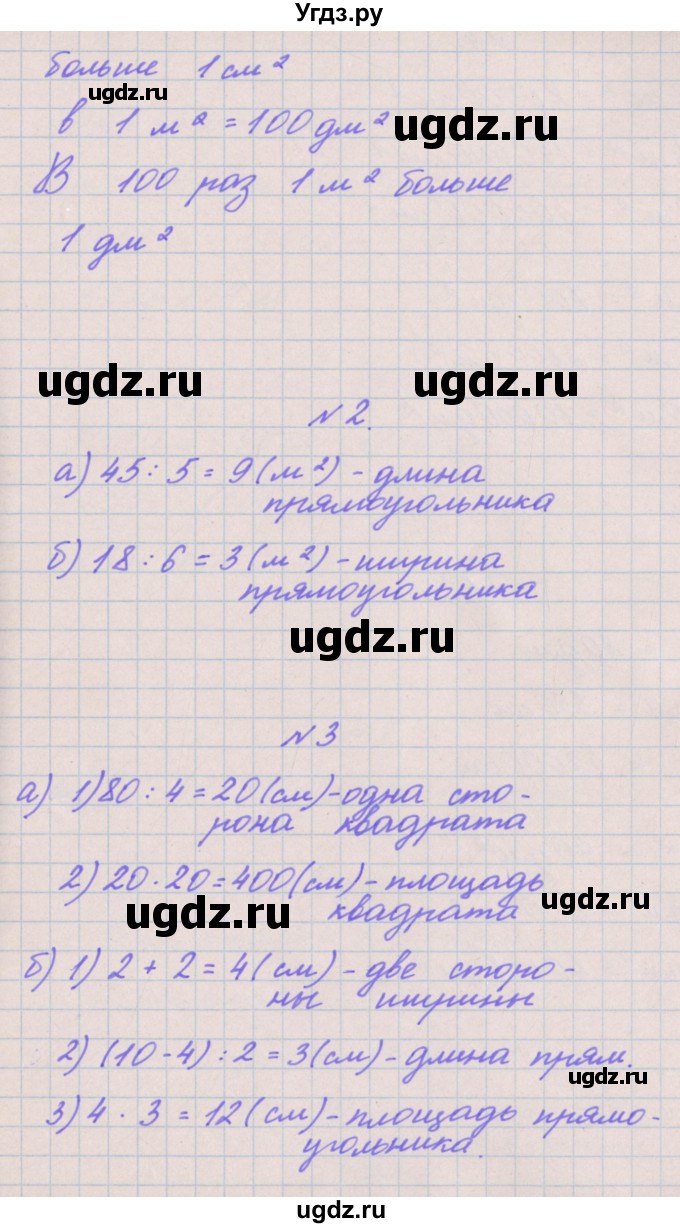 Угдз.ру
больше 1 см²
ugdz.ru
в 1 м² = 100 дм²
ugdz.ru
В 100 раз 1 м² больше
1 дм²
ugdz.ru
ugdz.ru
№2.
а) 45 : 5 = 9 (м²) - длина
прямоугольника
б) 18 : 6 = 3 (м²) - ширина
прямоугольника
ugdz.ru
№3
а) 1) 80 : 4 = 20 (см) - одна сто-
рона квадрата
2) 20 · 20 = 400 (см) - площадь
квадрата
ugdz.ru
ugdz.ru
б) 1) 2 + 2 = 4 (см) - две сторо-
ны ширины
2) (10 - 4) : 2 = 3 (см) - длина прям.
ugdz.ru
3) 4 · 3 = 12 (см) - площадь прямо-
угольника.
ugdz.ru